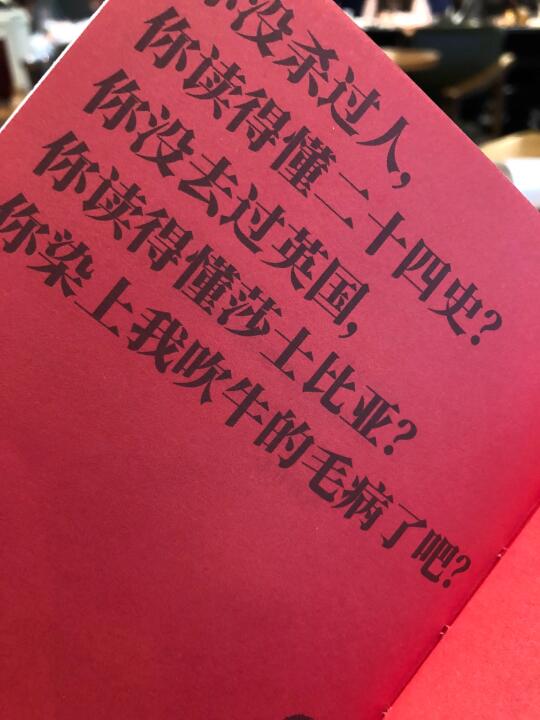 你没杀过人，
你读得懂二十四史？
你没去过英国，
你读得懂莎士比亚？
你染上我吹牛的毛病了吧？